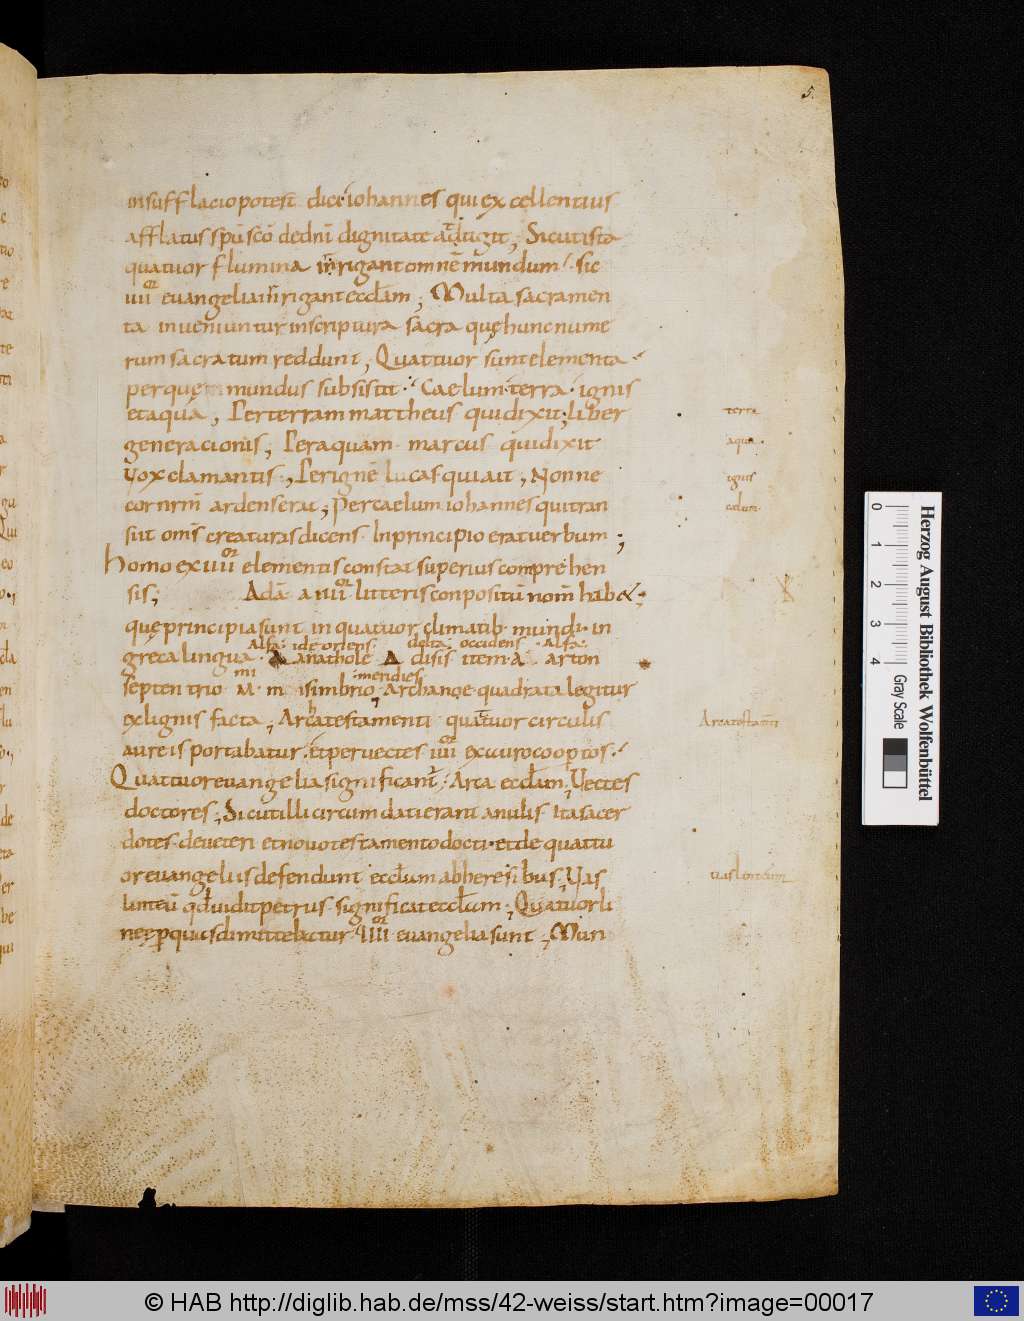 5.
insufflacio potest dici· iohannes qui excellentius
afflatus spū scō dedn̄i dignitate adtigit; Sicut ista
quatuor flumina inrigant omnē mundum· sic
uii evangelia inrigant eccl̄am; Multa sacramen
ta inveniuntur in scriptura sacra quę hunc nume
rum sacratum reddunt, Quattuor sunt elementa·
per quę mundus subsistit· Caelum· terra· ignis
et aqua, Per terram mattheus qui dixit; liber
generacionis; Per aquam marcus qui dixit
Vox clamantis·, Per ignē lucas qui ait, Nonne
cor nr̄m ardens erat; Per caelum iohannes qui tran
siit om̄s creaturas dicens· In principio erat verbum;
Homo ex iiii or elementis constat superius compre hen
sis; Adā a iiii or litteris conpositū nom̄ hab&;
quę principia sunt in quatuor climatib· mundi· in
Alfa· id e oriens· delta occidens · Alfa·
greca lingua· A anathole Δ disis· item· A· arton
mi meridies
septentrio M· m isimbrio, Archa noe quadrata legitur
ex lignis facta; Archa testamenti quatuor circulis
aureis portabatur· et per vectes iiii or ex auro coop̄tos·
Quattuor evangelia significant̄· Arca eccl̄am, Vectes
doctores; Sicut illi circum dati erant anulis· Ita sacer
dotes· de veteri et novo testamento docti· et de quattu
or evangeliis defendunt eccl̄am ab heresibus; Vas
linteū qd vidit petrus· significat eccl̄am; Quatuor li
neę p̄ quas dimittebatur· IIII or evangelia sunt; Mun
terra
aqua·
ignis
caelum·
Arca testam̄ti
vas linteum
Herzog August Bibliothek Wolfenbüttel
Gray Scale
0 1 2 3 4
© HAB http://diglib.hab.de/mss/42-weiss/start.htm?image=00017